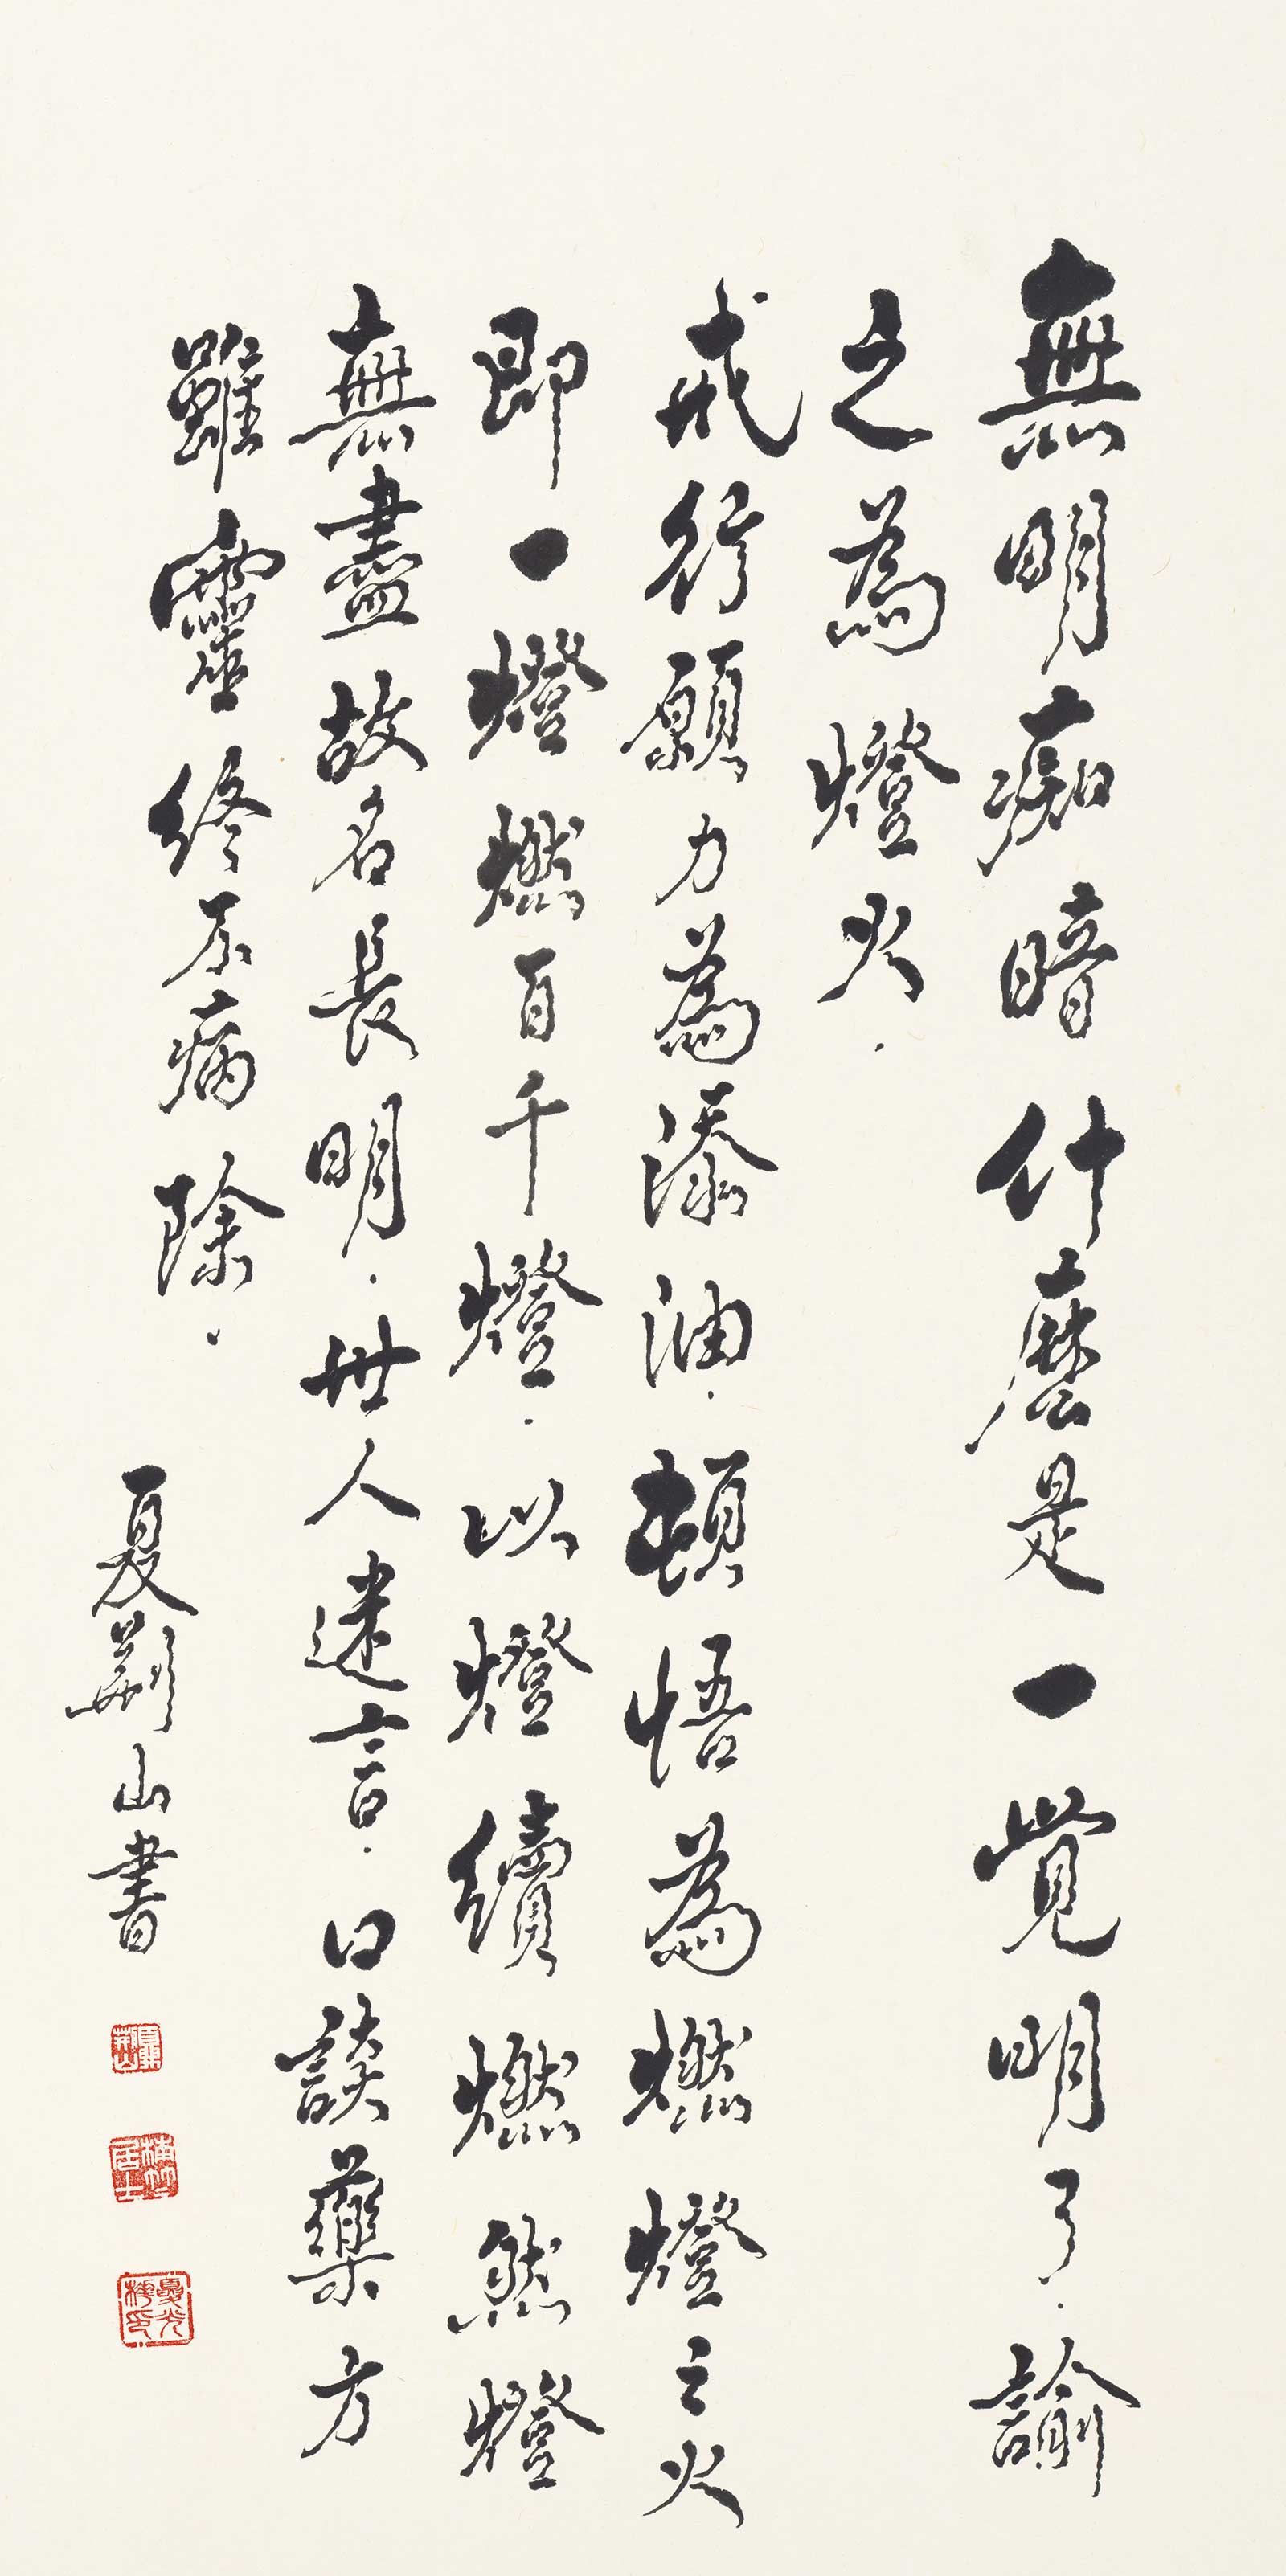 無明痴暗什麼是一覺明了.諭
之為燈火.
戒行願力為添油.頓悟為燃燈之火
即一燈燃百千燈.以燈續燃然燈
無盡故名長明.世人迷言.口談藥方
雖靈終不病除.
夏荊山書
夏荊山
梅竹居士